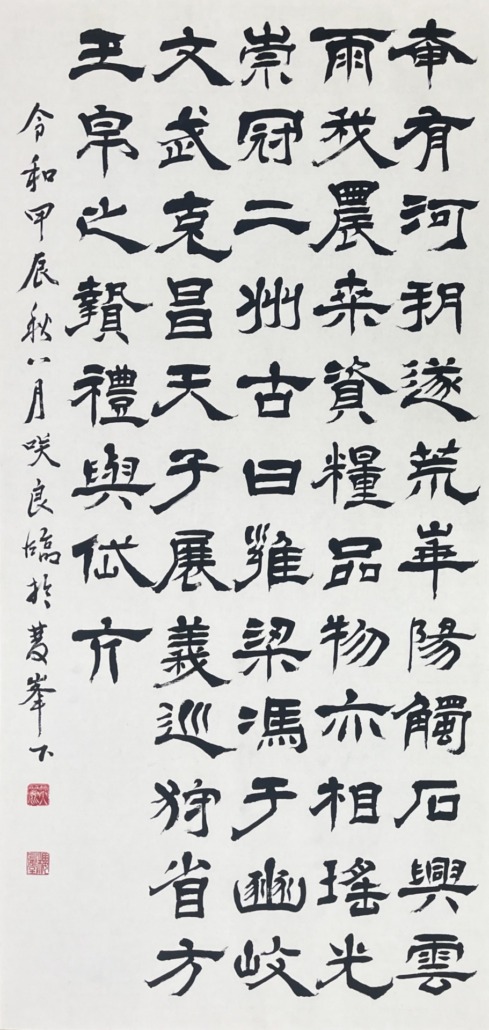 奄有河朔遂荒華陽觸石興雲
雨我農桒資糧品物亦相瑤光
崇冠二州古曰雍梁馮于豳岐
文武克昌天子展義巡狩省方
玉帛之贄禮與岱亢
令和甲辰秋八月咲良臨於峯下